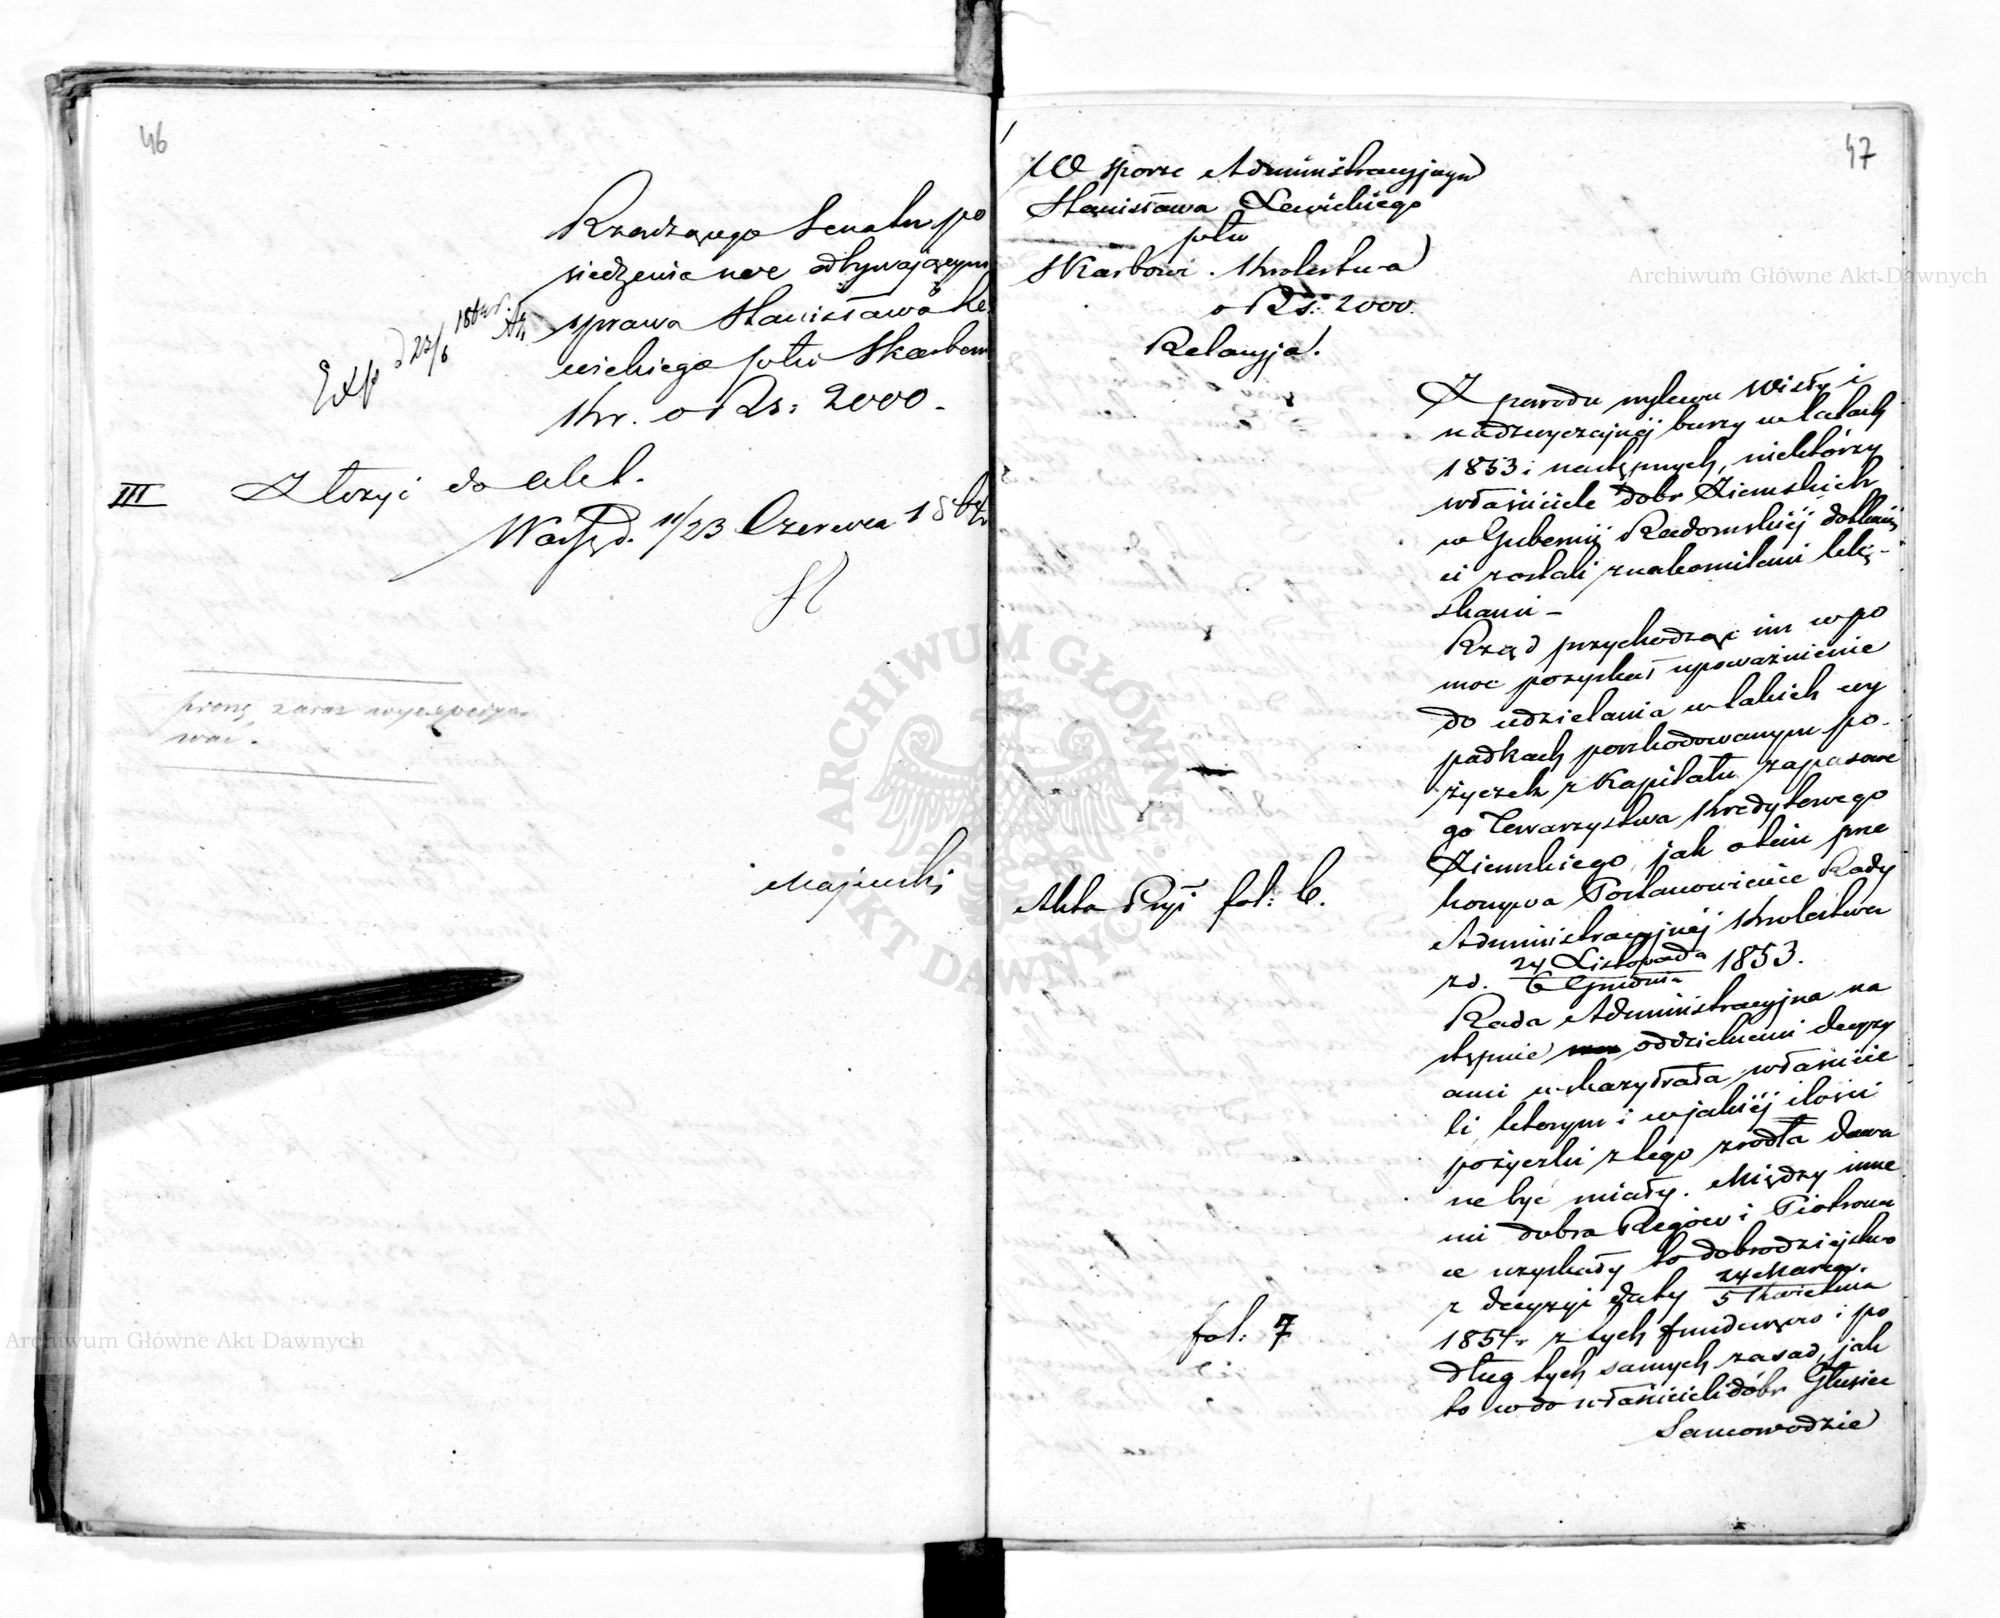 46
Rządzącego Senatu po
siedzenia nove odbywającym
sprawa Stanisława Le
wickiego pko Skarbowi
Kr. o Rs: 2000.
Exp d 23/6 1864 r.
III Złożyć do akt.
Warsz d. 11/23 Czerwca 1864 r
proszę zaraz wyexpedyo
wać.
Majewski
47
W sporze Administracyjnym
Stanisława Lewickiego
pko
Skarbowi Królestwa
o Rs: 2000.
Relacyja.
Z powodu wylewu Wisły i
nadzwyczajnéj burzy w latach
1853 i następnych, niektórzy
właściciele dobr Ziemskich
w Gubernii Radomskiéj dotknię
ci zostali znakomitemi klę-
skami –
Rząd przychodząc im w po
moc pozyskał upoważnienie
do udzielania w takich wy
padkach poszkodowanym po-
życzek z Kapitału zapasowe
go Towarzystwa Kredytowego
Ziemskiego, jak o tem prze
konywa Postanowienie Rady
Akta Pryż fol: 6.
Administracyjnéj Królestwa
z d. 24 Listopada / 6 Grudnia 1853.
Rada Administracyjna na
stępnie oddzielnemi decyzy
ami wskazywała właścicie
li którym i w jakiéj ilości
pożyczki z tego zrodła dawa
ne być miały. Między inne
mi dobra Regów i Piotrowi
ce uzyskały to dobrodziejstwo
z decyzyi daty 24 Marca / 5 Kwietnia
fol: 7
1854 r z tych funduszów i po
dług tych samych zasad, jak
to co do właścicieli dóbr Głusiec
Samowodzie
Archiwum Główne Akt Dawnych
ARCHIWUM GŁÓWNE AKT DAWNYCH
Archiwum Główne Akt Dawnych